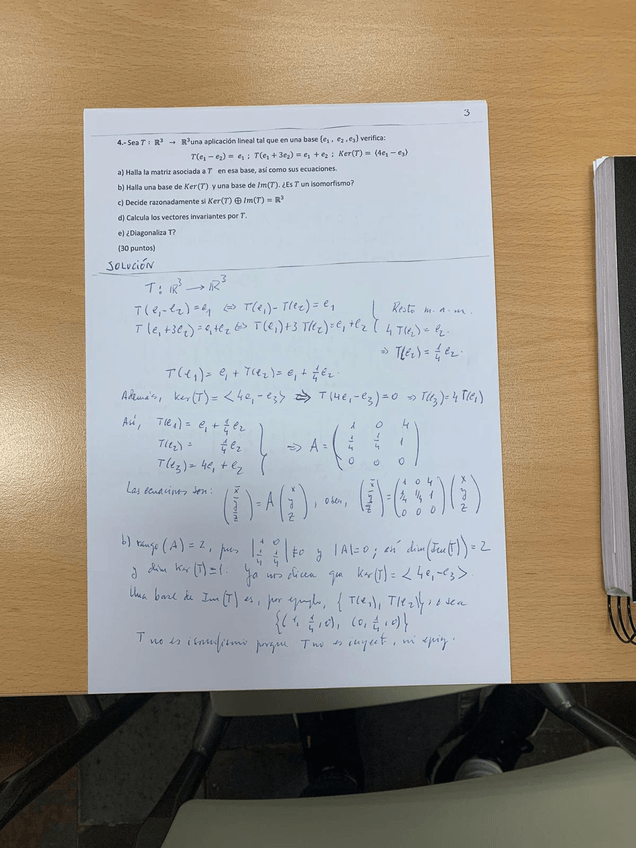 3
4.- Sea T : ℝ³ → ℝ³ una aplicación lineal tal que en una base {e₁ , e₂ , e₃} verifica:
T(e₁ − e₂) = e₁ ; T(e₁ + 3e₂) = e₁ + e₂ ; Ker(T) = ⟨4e₁ − e₃⟩
a) Halla la matriz asociada a T en esa base, así como sus ecuaciones.
b) Halla una base de Ker(T) y una base de Im(T). ¿Es T un isomorfismo?
c) Decide razonadamente si Ker(T) ⊕ Im(T) = ℝ³
d) Calcula los vectores invariantes por T.
e) ¿Diagonaliza T?
(30 puntos)
SOLUCIÓN
T : ℝ³ → ℝ³
T(e₁-e₂)=e₁ ⇔ T(e₁)-T(e₂)=e₁
T(e₁+3e₂)=e₁+e₂ ⇔ T(e₁)+3T(e₂)=e₁+e₂
Resto m. a. m.
4T(e₂)=e₂.
⇒ T(e₂)=1/4 e₂.
T(e₁)= e₁ + T(e₂)= e₁ + 1/4 e₂
Además, Ker(T)= <4e₁-e₃> ⇒ T(4e₁-e₃)=0 ⇒ T(e₃)=4T(e₁)
Así, T(e₁)= e₁ + 1/4 e₂
T(e₂)= 1/4 e₂
T(e₃)= 4e₁ + e₂
⇒ A = (1 0 4
1/4 1/4 1
0 0 0)
Las ecuaciones son: (x̄ ȳ z̄) = A (x y z), o bien, (x̄ ȳ z̄) = (1 0 4 1/4 1/4 1 0 0 0) (x y z)
b) rango(A)=2, pues |1 0 1/4 1/4| ≠0 y |A|=0; así dim(Im(T))=2
y dim Ker(T)=1. Ya nos dicen que Ker(T)= <4e₁-e₃>.
Una base de Im(T) es, por ejemplo, {T(e₁), T(e₂)}, o sea
{(1, 1/4, 0), (0, 1/4, 0)}
T no es isomorfismo porque T no es inyect. ni epiy.